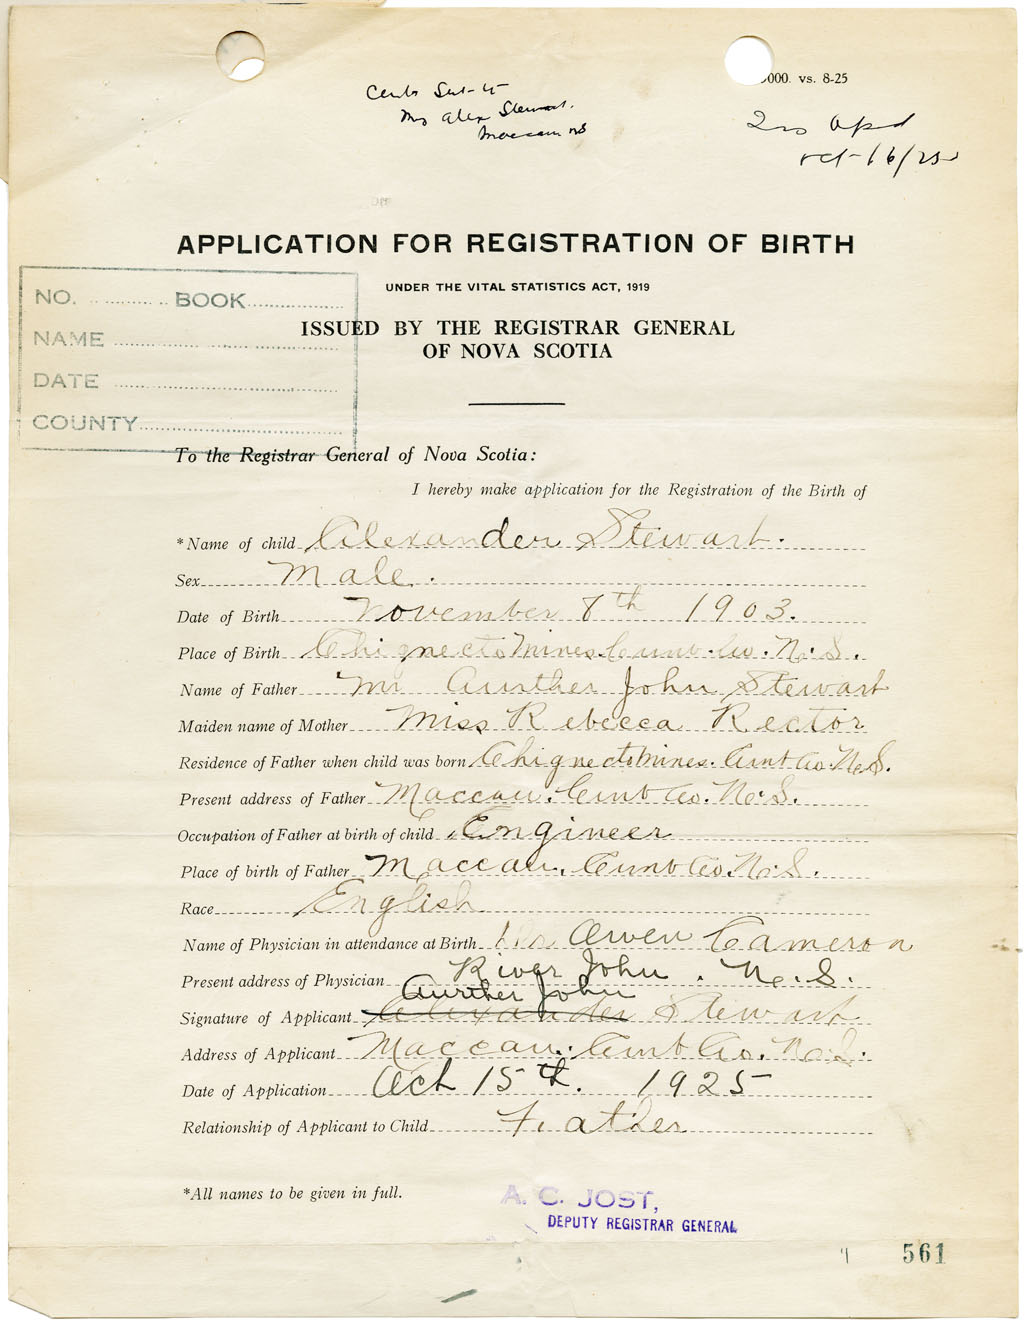 000. vs. 8-25
Mrs Alex Stewart.
Maccan NS
Oct 16/25
APPLICATION FOR REGISTRATION OF BIRTH
UNDER THE VITAL STATISTICS ACT, 1919
ISSUED BY THE REGISTRAR GENERAL
OF NOVA SCOTIA
NO. BOOK
NAME
DATE
COUNTY
To the Registrar General of Nova Scotia:
I hereby make application for the Registration of the Birth of
*Name of child Alexander Stewart.
Sex Male.
Date of Birth November 8th 1903.
Place of Birth Chignecto Mines Cumb. Co. N.S.
Name of Father Mr Aurther John Stewart
Maiden name of Mother Miss Rebecca Rector
Residence of Father when child was born Chignecto Mines. Cumb Co. N.S.
Present address of Father Maccan. Cumb Co. N.S.
Occupation of Father at birth of child Engineer
Place of birth of Father Maccan. Cumb Co. N.S.
Race English
Name of Physician in attendance at Birth Dr. Owen Cameron
Present address of Physician River John. N.S.
Aurther John
Signature of Applicant Alexander Stewart
Address of Applicant Maccan. Cumb Co. N.S.
Date of Application Oct 15th. 1925
Relationship of Applicant to Child Father
*All names to be given in full.
A. C. JOST,
DEPUTY REGISTRAR GENERAL
561